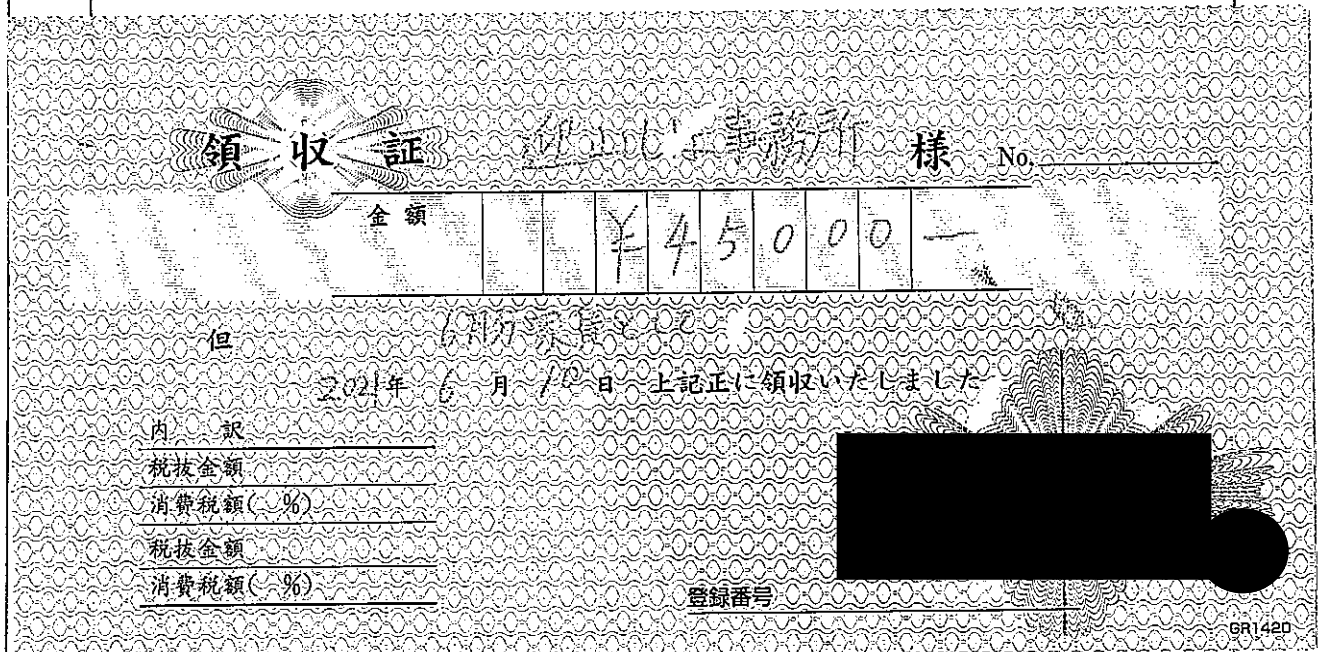 領収証 事務所 様 No.
金額 ¥45000-
但 6月分家賃として
2021年 6月10日 上記正に領収いたしました
内訳
税抜金額
消費税額( %)
税抜金額
消費税額( %)
登録番号
GR1420